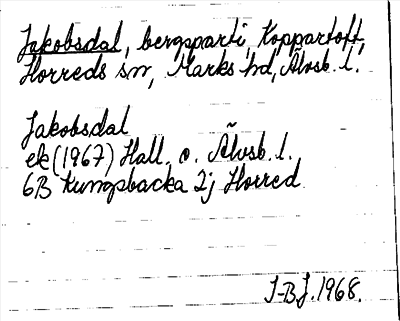 Jakobsdal, bergsparti, Koppartoft,
Horreds sn, Marks hd, Älvsb. l.
Jakobsdal
ek (1967) Hall. o. Älvsb. l.
6B Kungsbacka 2j Horred
I-BJ. 1968.